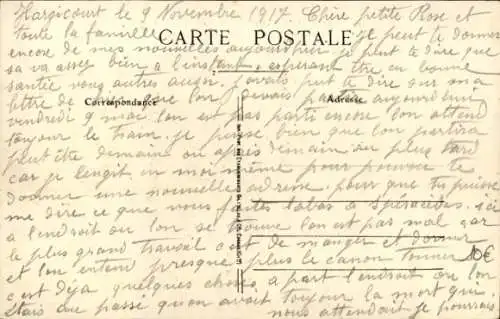 Hargicourt le 9 Novembre 1917. Chère petite Rose et
toute la famille je peut te donner
CARTE POSTALE
encore de mes nouvelles aujourdhui je peut te dire que
sa va assez bien a l'instant, esperant être en bonne
santée vous autres aussi. J'avais put te dire sur ma
lettre de que lon devais partir aujourdhui
Correspondance
Adresse
vendredi 9 mai lon est pas parti encore lon attend
toujour le tram. je pense bien que lon partira
peut être demain ou après demain au plus tard
car je lengit en moi même pour pouvoir te
donner une nouvelle adresse. pour que tu puisse
me dire ce que vous faites labas a ici
a lendroit ou lon se trouve lon est pas mal car
le plus grand travail est de manger et dormir
et lon entend presque plus le canon tonner
10€
c'est déja quelques choses a part lendroit ou lon
étais que passé quon avait toujour la mort que
nous attendait je pourrais